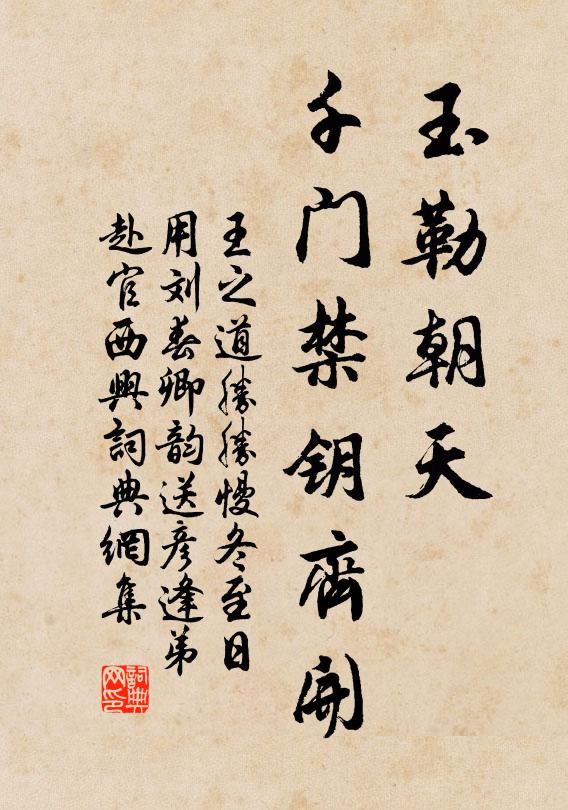 玉勒朝天
千门禁钥齊開
王之道勝勝慢冬至日
用刘春卿韵送彦逢弟
赴官西興詞典網集
詞典
网印